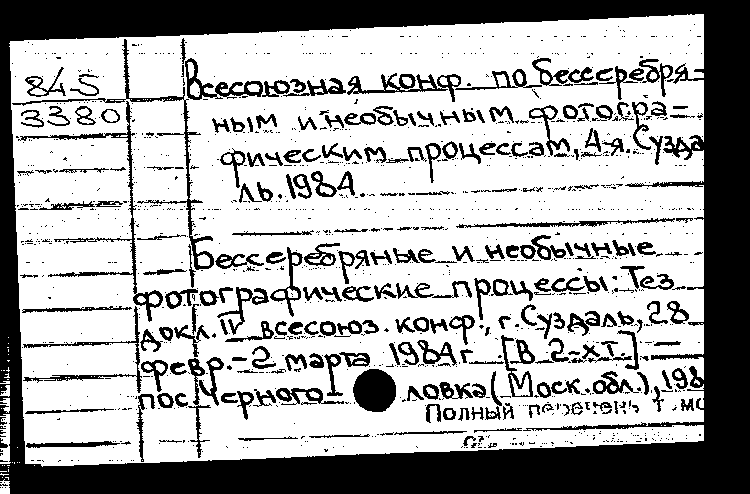 84-5
3380
Всесоюзная конф. по бессеребря=
ным и необычным фотогра=
фическим процессам, 4-я. Сузда
ль. 1984.
Бессеребряные и необычные
фотографические процессы: Тез
докл. IV всесоюз. конф., г. Суздаль, 28
февр. - 2 марта 1984 г. [В 2-х т.]. —
пос. Черного- ловка (Моск. обл.), 198
Полный перечень т.